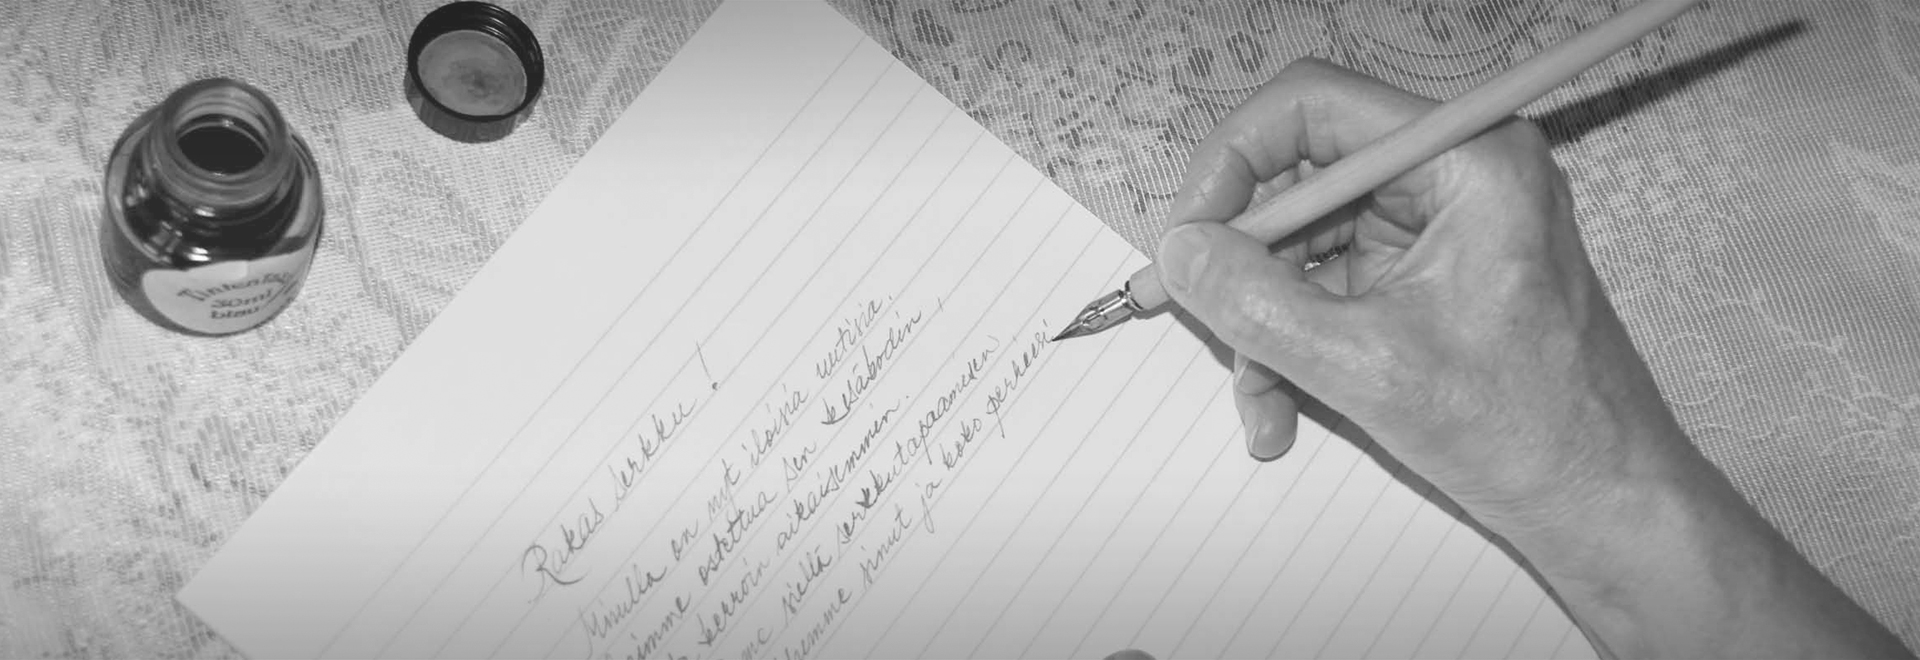 Tinten
30ml
blau
Rakas serkku!
Minulla on nyt iloisia uutisia.
ostettua sen kesäkodin,
kerroin aikaisemmin.
me siellä serkkutapaamisen
sinut ja koko perheesi